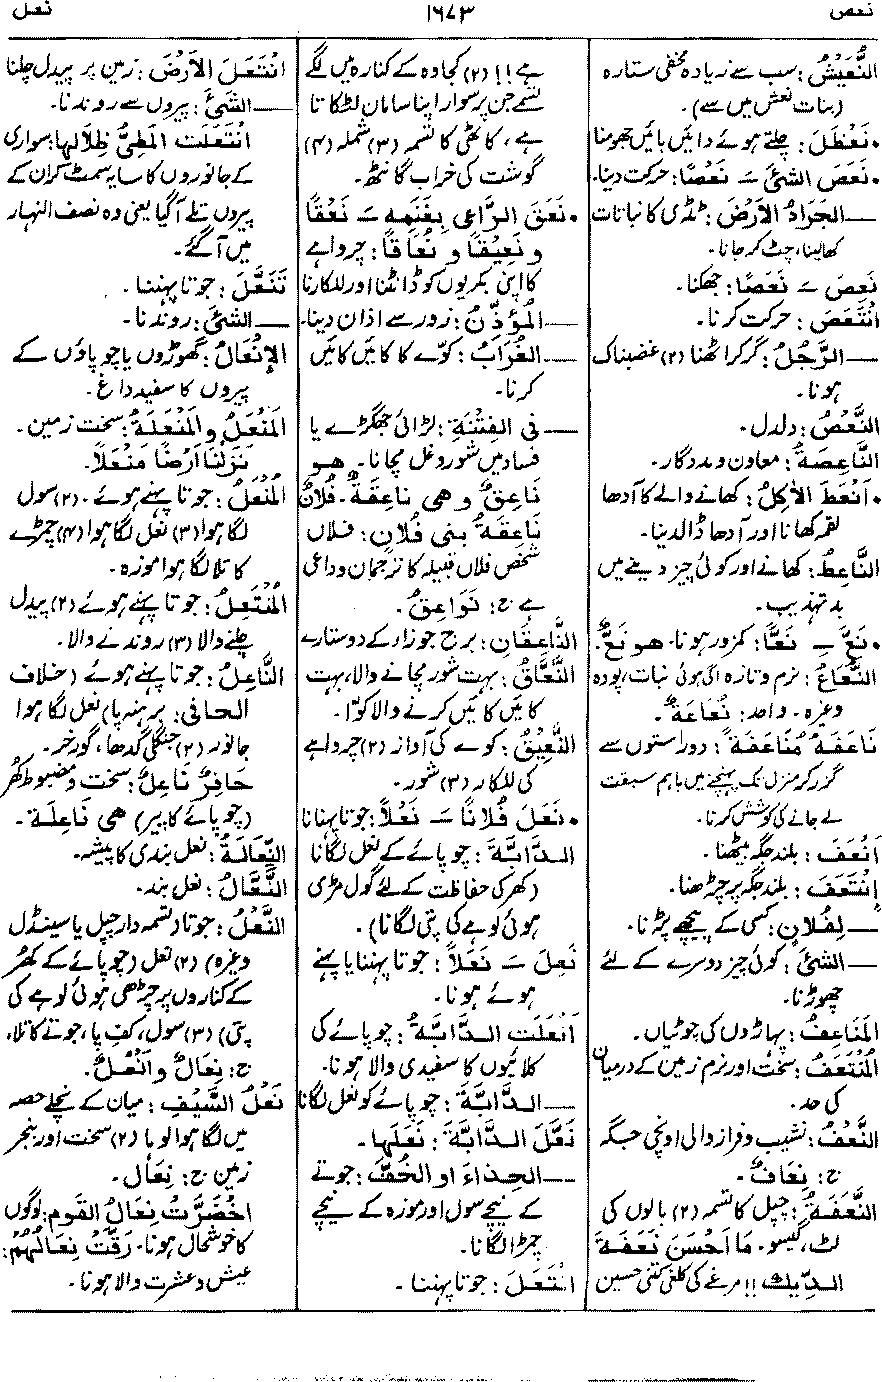 نعص
١٦٧٣
نعل
النُّعَيشُ: سب سے زیادہ مخفی ستارہ
(بنات نعش میں سے)۔
• نَعْطَلَ: چلتے ہوئے دائیں بائیں جھومنا
• نَعَصَ الشیَٔ ـَـ نَعْصًا: حرکت دینا۔
— الجَرَادُ الأرْضَ: ٹڈی کا نباتات
کھالینا، چٹ کر جانا۔
نَعِصَ ـَـ نَعَصًا: جھکنا۔
انْتَعَصَ: حرکت کرنا۔
— الرَّجُلُ: گر کر اٹھنا (۲) غضبناک
ہونا۔
النَّعْصُ: دلدل۔
النَّاعِصَةُ: معاون و مددگار۔
• اَنْعَطَ الاٰكِلُ: کھانے والے کا آدھا
لقمہ کھانا اور آدھا ڈالدینا۔
النَّاعِطُ: کھانے اور کوئی چیز دینے میں
بد تہذیب۔
• نَعَّ ـِـ نَعًّا: کمزور ہونا۔ هو نَعٌّ۔
النُّعَاعُ: نرم و تازہ اگی ہوئی نبات، پودہ
وغیرہ۔ واحد: نُعَاعَةٌ۔
نَاعَفَهُ مُنَاعَفَةً: دو راستوں سے
گزر کر منزل تک پہنچنے میں باہم سبقت
لے جانے کی کوشش کرنا۔
اَنْعَفَ: بلند جگہ بیٹھنا۔
اِنْتَعَفَ: بلند جگہ پر چڑھنا۔
— لِفُلانٍ: کسی کے پیچھے پڑنا۔
— الشیَٔ: کوئی چیز دوسرے کے لئے
چھوڑنا۔
المَنَاعِفُ: پہاڑوں کی چوٹیاں۔
المُنْتَعَفُ: سخت اور نرم زمین کے درمیان
کی حد۔
النَّعْفُ: نشیب و فراز والی اونچی جگہ
ج: نِعَافٌ۔
النَّعَفَةُ: چپل کا تسمہ (۲) بالوں کی
لٹ، گیسو۔ مَا اَحْسَنَ نَعَفَةَ
الدِّيك!! مرغے کی کلغی کتنی حسین
ہے!! (۲) کجاوہ کے کنارہ میں لگے
تسمے جن پر سوار اپنا سامان لٹکاتا
ہے، کاٹھی کا تسمہ (۳) شملہ (۴)
گوشت کی خراب گانٹھ۔
• نَعَقَ الرَّاعی بِغَنَمِه ـَـ نَعْقًا
و نَعِيقًا و نُعَاقًا: چرواہے
کا اپنی بکریوں کو ڈانٹنا اور للکارنا
— المُؤَذِّنُ: زور سے اذان دینا۔
— الغُرَابُ: کوّے کا کائیں کائیں
کرنا۔
— فی الفِتْنَةِ: لڑائی جھگڑے یا
فساد میں شور و غل مچانا۔ هو
نَاعِقٌ و هی ناعِقَةٌ۔ فُلَانٌ
نَاعِقَةُ بنی فُلَان: فلاں
شخص فلاں قبیلہ کا ترجمان و داعی
ہے ج: نَوَاعِقُ۔
النَّاعِقَانِ: برج جوزاء کے دو ستارے
النَّعَّاقُ: بہت شور مچانے والا، بہت
کائیں کائیں کرنے والا کوّا۔
النَّعِيْقُ: کوے کی آواز (۲) چرواہے
کی للکار (۳) شور۔
• نَعَلَ فُلَانًا ـَـ نَعْلاً: جوتا پہنانا
الدَّابَّةَ: چوپائے کے نعل لگانا
(کھر کی حفاظت کے لئے گول مڑی
ہوئی لوہے کی پتی لگانا)۔
نَعِلَ ـَـ نَعَلاً: جوتا پہننا یا پہنے
ہوئے ہونا۔
اَنْعَلَت الدَّابَّةُ: چوپائے کی
کلائیوں کا سفیدی والا ہونا۔
— الدَّابَّةَ: چوپائے کو نعل لگانا
نَعَّلَ الدَّابَّةَ: نَعَلَها۔
— الحِذاءَ او الخُفَّ: جوتے
کے نیچے سول اور موزہ کے نیچے
چمڑا لگانا۔
انْتَعَلَ: جوتا پہننا۔
انْتَعَلَ الأرْضَ: زمین پر پیدل چلنا
— الشیَٔ: پیروں سے روندنا۔
انْتَعَلَت المَطِیُّ ظِلَالَها: سواری
کے جانوروں کا سایہ سمٹ کر ان کے
پیروں تلے آگیا یعنی وہ نصف النہار
میں آگئے۔
تَنَعَّلَ: جوتا پہننا۔
— الشیَٔ: روندنا۔
الإنْعَالُ: گھوڑوں یا چوپاؤں کے
پیروں کا سفید داغ۔
المَنْعَلُ و المَنْعَلَةُ: سخت زمین۔
نَزَلْنَا اَرْضًا مَنْعَلاً۔
المُنْعَلُ: جوتا پہنے ہوئے۔ (۲) سول
لگا ہوا (۳) نعل لگا ہوا (۴) چمڑے
کا تلا لگا ہوا موزہ۔
المُنْتَعِلُ: جوتا پہنے ہوئے (۲) پیدل
چلنے والا (۳) روندنے والا۔
النَّاعِلُ: جوتا پہنے ہوئے (خلاف
الحافی: برہنہ پا) نعل لگا ہوا
جانور (۲) جنگلی گدھا، گورخر۔
حَافِرٌ نَاعِلٌ: سخت و مضبوط کھر
(چوپائے کا پیر) هی نَاعِلَة۔
النِّعَالَةُ: نعل بندی کا پیشہ۔
النَّعَّالُ: نعل بند۔
النَّعْلُ: جوتا، تسمہ دار چپل یا سینڈل
وغیرہ) (۲) نعل (چوپائے کے کھر
کے کناروں پر چڑھی ہوئی لوہے کی
پتی) (۳) سول، کفِ پا، جوتے کا تلا،
ج: نِعَالٌ و اَنْعُلٌ۔
نَعْلُ السَّيْفِ: میان کے نچلے حصہ
میں لگا ہوا لوہا (۲) سخت اور بنجر
زمین ج: نِعَال۔
اخْضَرَّتْ نِعَالُ القَومِ: لوگوں
کا خوشحال ہونا۔ رَقَّتْ نِعَالُهُمْ:
عیش و عشرت والا ہونا۔